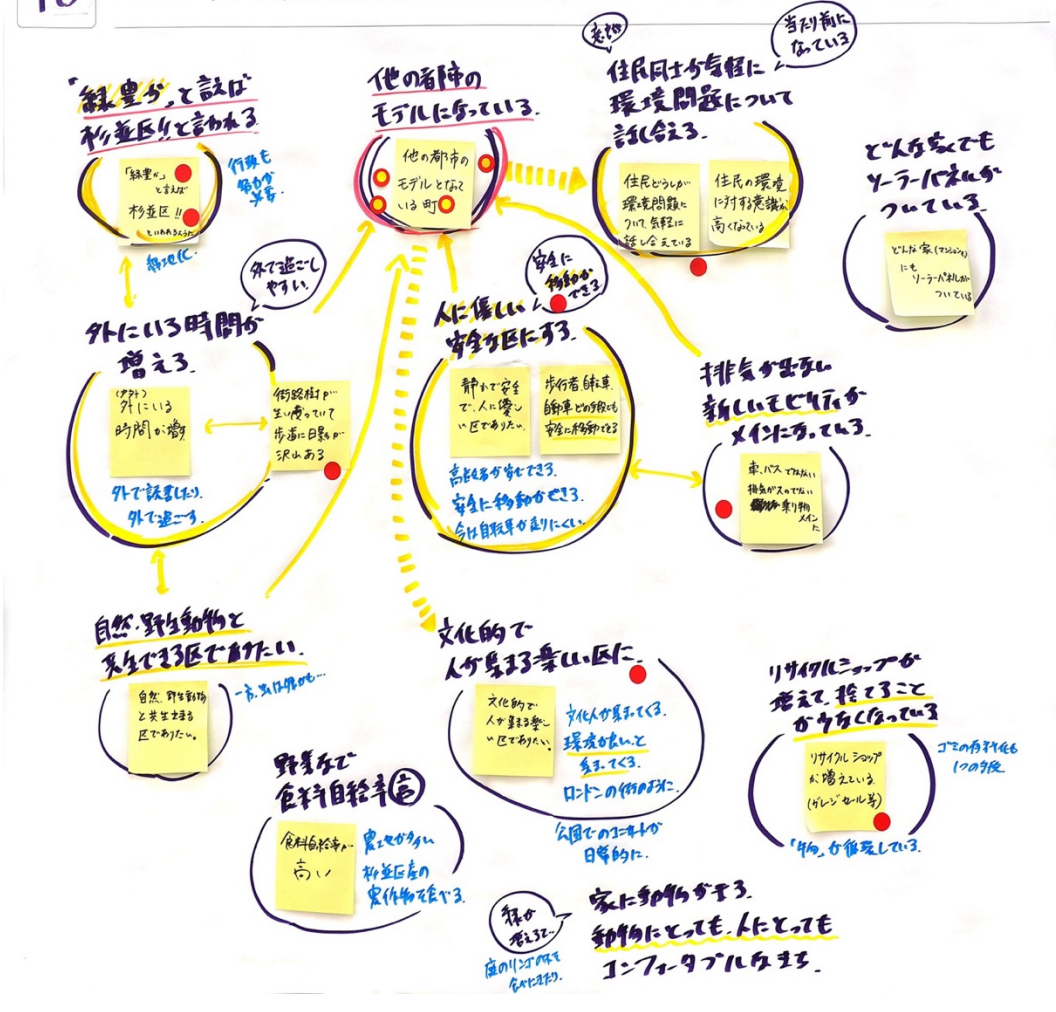 「緑豊か」と言えば
杉並区!!と言われる
「緑豊か」
と言えば
杉並区!!
といわれるように
行政も
努力が
必要
緑地化
他の都市の
モデルになっている。
他の都市の
モデルとなって
いる町
当たり前に
なっている
住民同士が気軽に
環境問題について
話し合える。
住民どうしが
環境問題に
ついて気軽に
話し合えている
住民の環境
に対する意識が
高くなっている
どんな家でも
ソーラーパネルが
ついている
どんな家(マンションも)
にも
ソーラーパネルが
ついている
外で過ごし
やすい
外にいる時間が
増える
外にいる
時間が増す
街路樹が
生い茂っていて
歩道に日影が
沢山ある
外で読書したり、
外で過ごす。
安全に
移動が
できる
人に優しい
安全な区にする
静かで安全
で、人に優し
い区でありたい。
歩行者、自転車、
自動車どの手段でも
安全に移動できる
高齢者が安心できる。
安全に移動ができる。
今は自転車が走りにくい。
排気が出ない
新しいモビリティが
メインになっている
車、バスではない
排気ガスのでない
乗り物
メイン
に
自然・野生動物と
共生できる区でありたい。
自然、野生動物
と共生出来る
区でありたい。
文化的で
人が集まる楽しい区に
文化的で
人が集まる楽し
い区でありたい。
文化人が集まってくる。
環境が良いと
集まってくる。
ロンドンの街のように。
公園でのコンサートが
日常的に。
リサイクルショップが
増えて、捨てること
が少なくなっている
リサイクルショップ
が増えている
(ガレージセール等)
ゴミの有料化も
1つの手段
「物」が循環している。
野菜などで
食料自給率高
食料自給率が
高い
農地が多い
杉並区産の
農作物を食べる。
緑が
増えるで…
庭のリンゴの木を
食べにきたり。
家に動物が来る。
動物にとっても、人にとっても
コンフォータブルなまち。